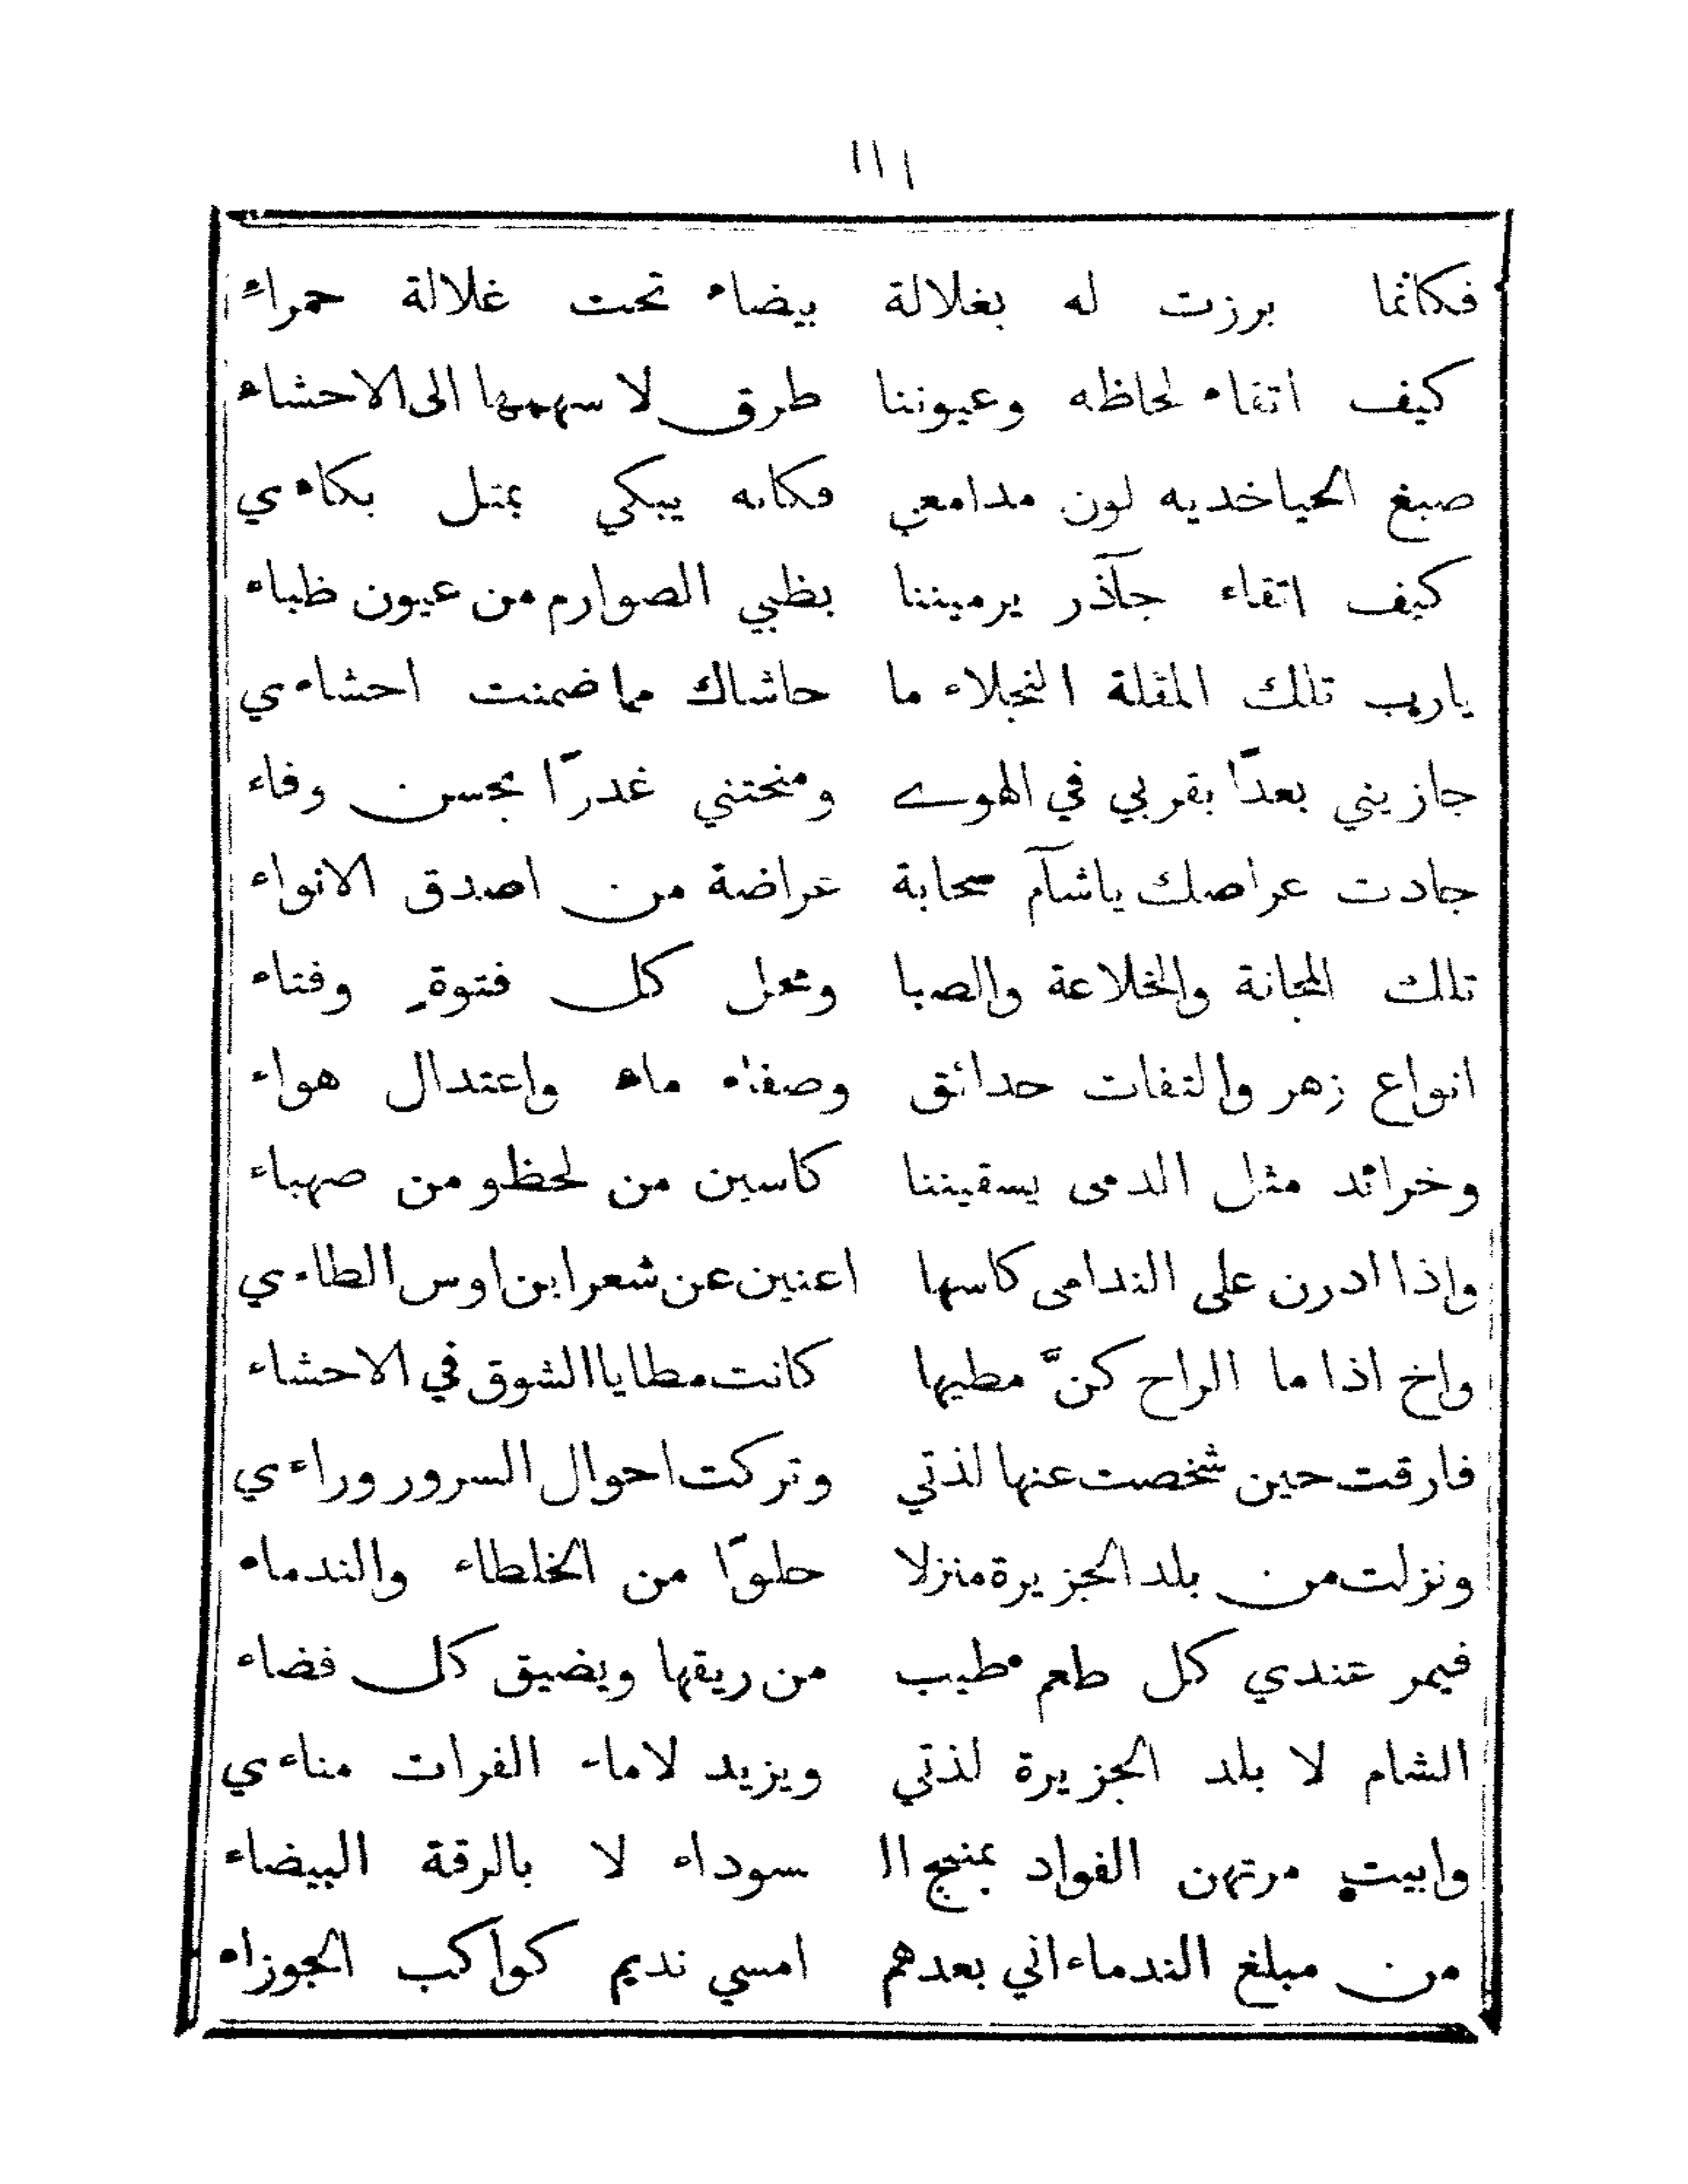 ١١١
فكانما برزت له بغلالة بيضاء تحت غلالة حمراءِ
كيف اتقاء لحاظه وعيوننا طرق لاسهمها الى الاحشاء
صبغ الحيا خديه لون مدامعي فكانه يبكي بمثل بكاءي
كيف اتقاء جآذر يرميننا بظبي الصوارم من عيون ظباء
يارب تلك المقلة النجلاء ما حاشاك مما ضمنت احشاءي
جازيني بعدًا بقربي في الهوى ومنحتني غدرًا بحسن وفاء
جادت عراصك ياشآم سحابة عراضة من اصدق الانواء
تلك المجانة والخلاعة والصبا ومحل كل فتوةٍ وفتاء
انواع زهر والتفات حدائق وصفاء ماء واعتدال هواء
وخرائد مثل الدمى يسقيننا كاسين من لحظ ومن صهباء
واذا ادرن على الندامى كاسها اغنين عن شعر ابن اوس الطاءي
واخ اذا ما الراح كنَّ مطيها كانت مطايا الشوق في الاحشاء
فارقت حين شخصت عنها لذتي وتركت احوال السرور وراءي
ونزلت من بلد الجزيرة منزلا حلوًا من الخلطاء والندماء
فيمر عندي كل طعم طيب من ريقها ويضيق كل فضاء
الشام لا بلد الجزيرة لذتي ويزيد لاماء الفرات مناءي
وابيت مرتهن الفواد بمنبج ال سوداء لا بالرقة البيضاء
من مبلغ الندماء اني بعدهم امسي نديم كواكب الجوزاء